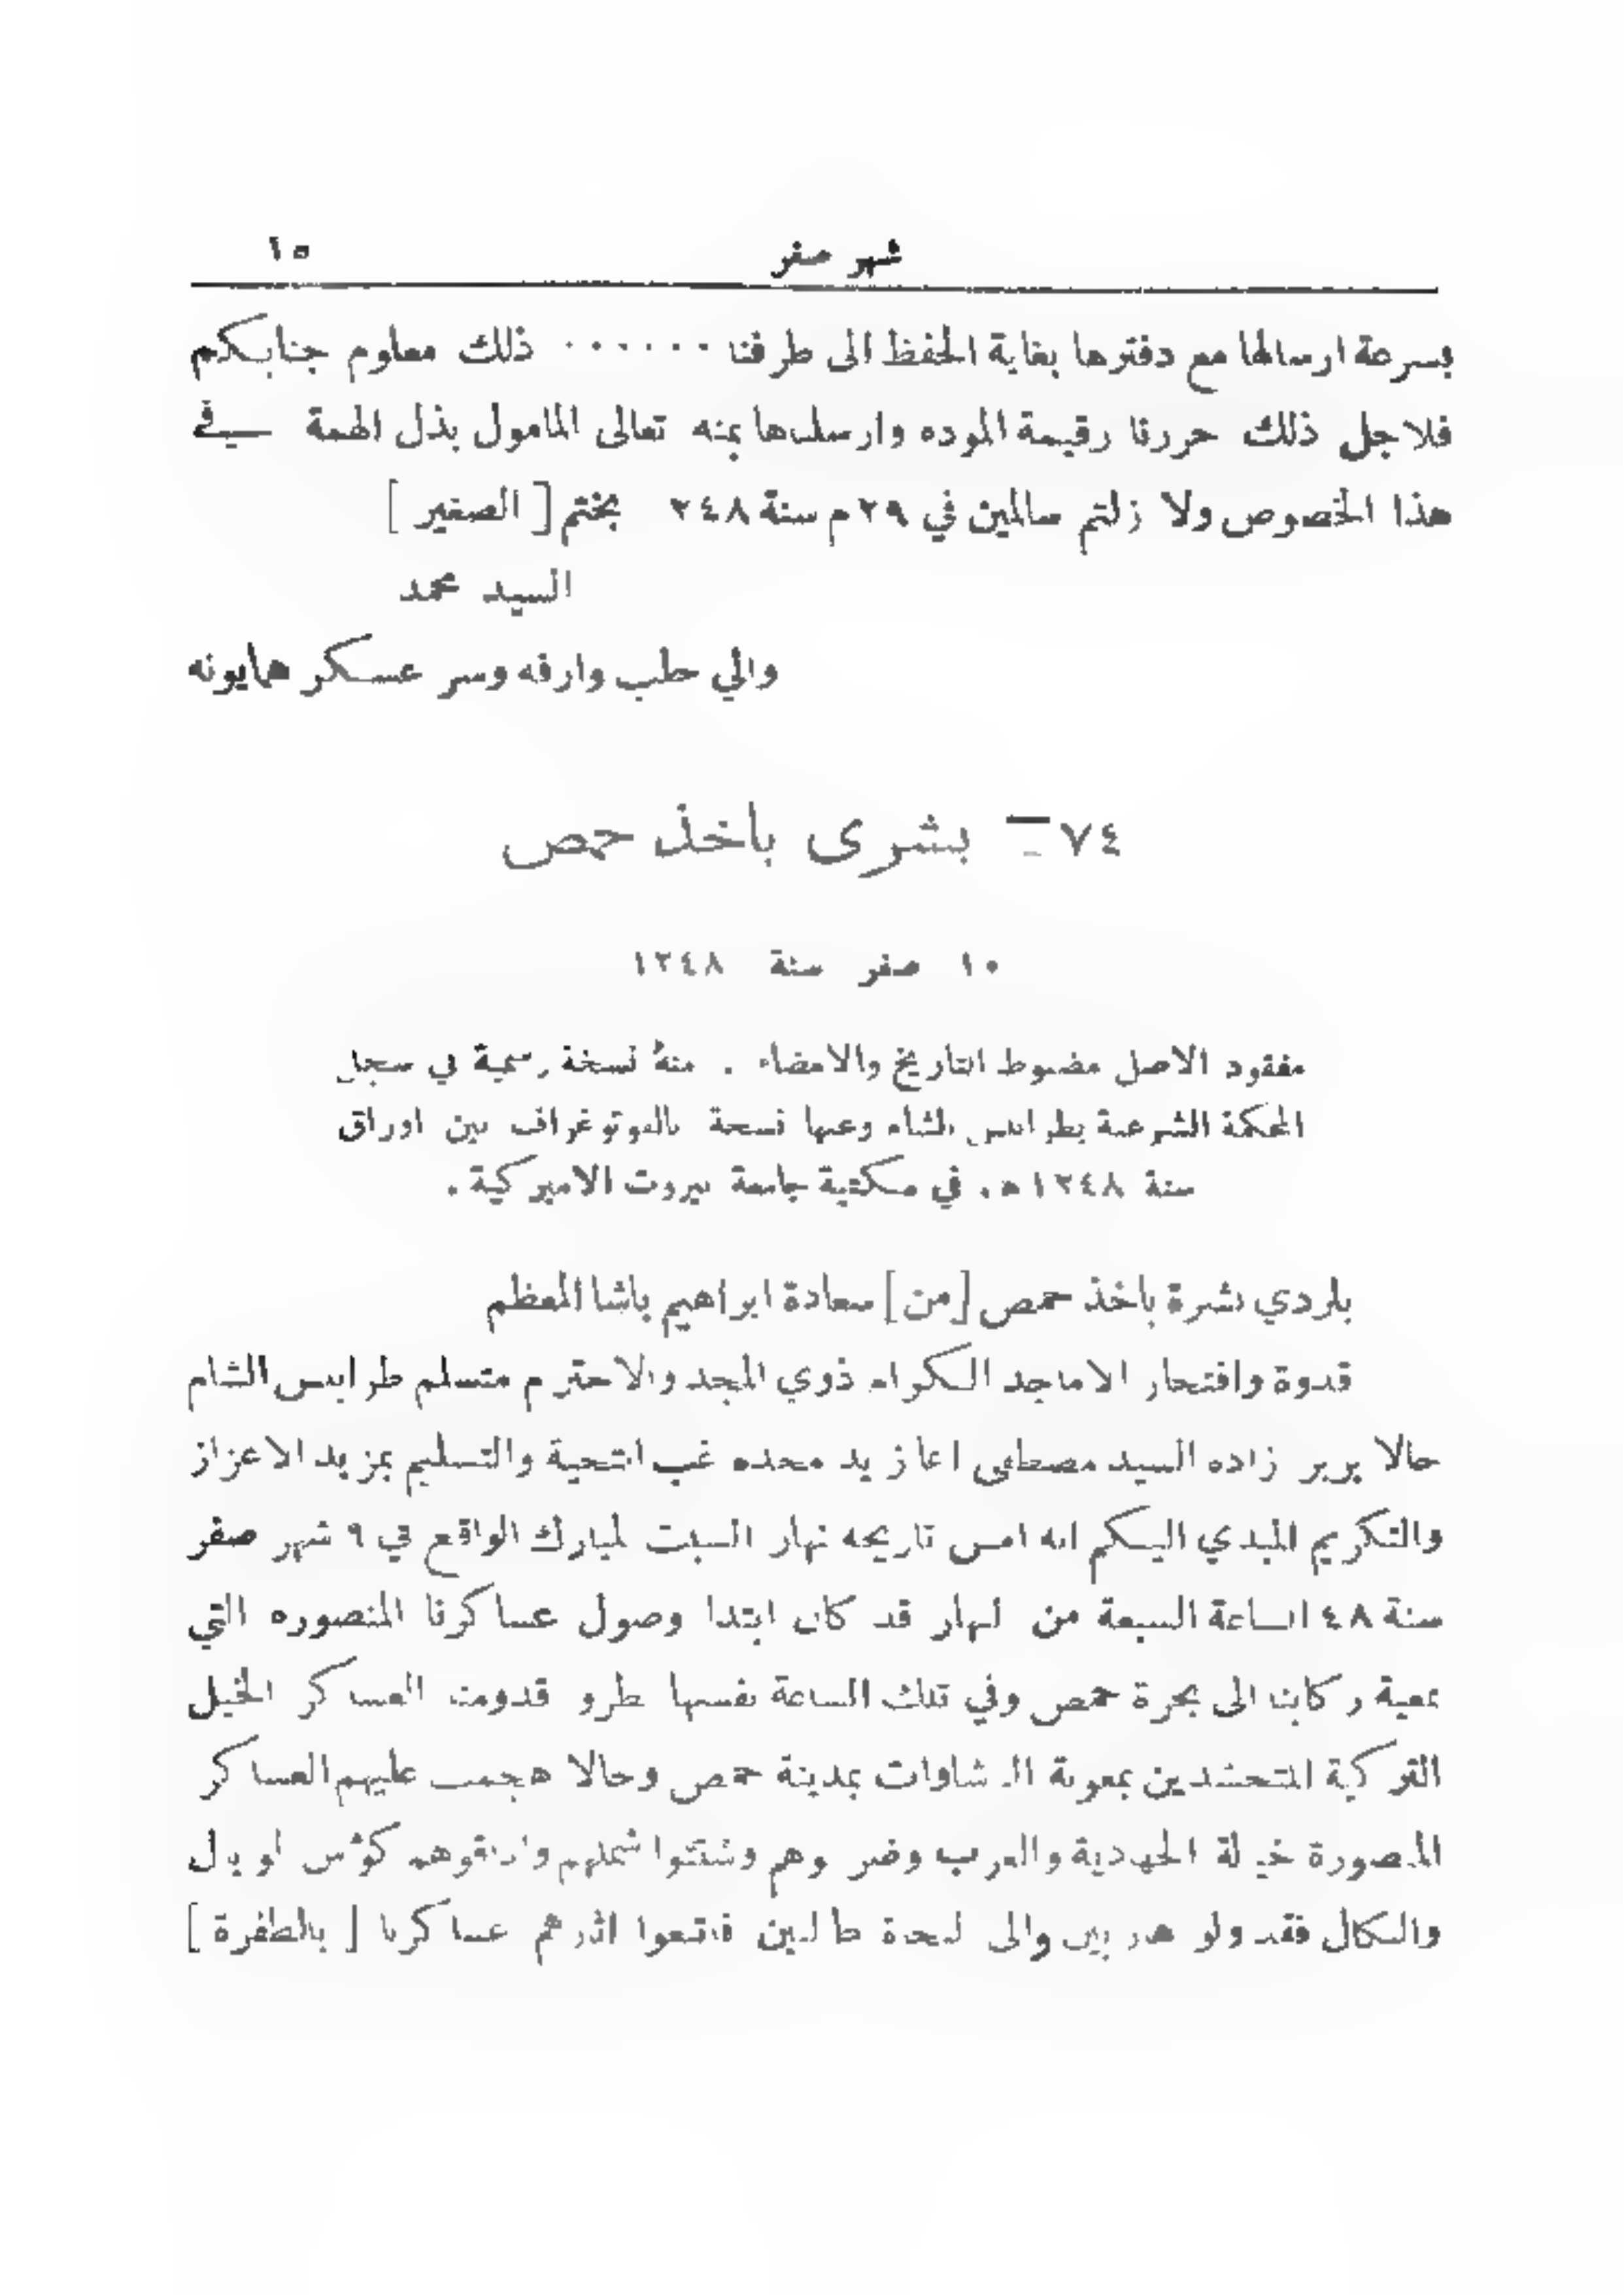 شهر صفر ١٥
بسرعة ارسالها مع دفترها بغاية الحفظ الى طرفنا ٠٠٠٠٠٠ ذلك معلوم جنابكم
فلاجل ذلك حررنا رقيمة الموده وارسلناها بمنه تعالى المامول بذل الهمة في
هذا الخصوص ولا زلتم سالمين في ٢٩ م سنة ٢٤٨ بختم [ الصغير ]
السيد محمد
والي حلب وارقه وسر عسكر همايونه
٧٤ – بشرى باخذ حمص
١٠ صفر سنة ١٢٤٨
مفقود الاصل مضبوط التاريخ والامضاء . منهُ نسخة رسمية في سجل
المحكمة الشرعية بطرابلس الشام وعنها نسخة بالفوتوغراف بين اوراق
سنة ١٢٤٨ ه. في مكتبة جامعة بيروت الاميركية .
بلردي بشرة باخذ حمص [من] سعادة ابراهيم باشا المعظم
قدوة وافتحار الاماجد الكرام ذوي المجد والاحترم متسلم طرابلس الشام
حالا بربر زاده السيد مصطفى اغا زيد مجده غب التحية والتسليم بمزيد الاعزاز
والتكريم المبدي اليكم انه امس تاريخه نهار السبت المبارك الواقع في ٩ شهر صفر
سنة ٤٨ الساعة السبعة من النهار قد كان ابتدا وصول عساكرنا المنصوره التي
بمعية ركابنا الى بحرة حمص وفي تلك الساعة نفسها طرو قدومت العساكر الخيل
التركية المتحشدين بمعونة الباشاوات بمدينة حمص وحالا هجمت عليهم العساكر
المنصورة خيالة الجهادية والعرب وضربوهم وشتتوا شملهم واذاقوهم كوئس الوبال
والنكال فقد ولو هاربين والى النجاة طالبين فاتبعوا اثرهم عساكرنا [ بالظفرة ]